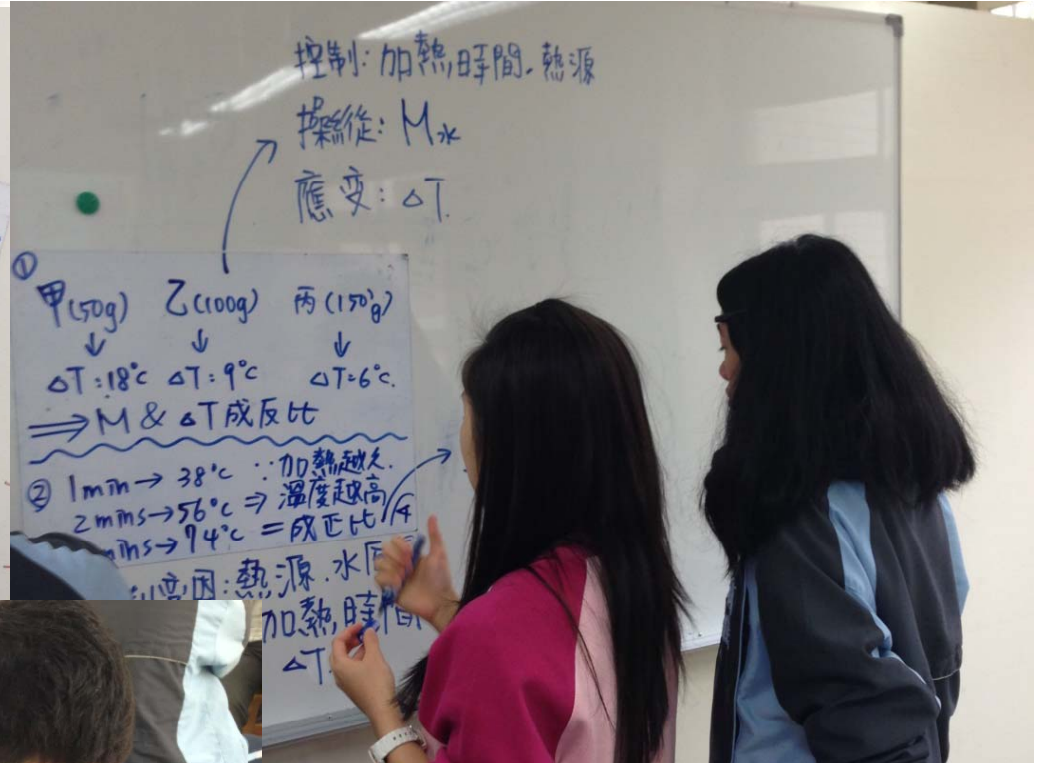 控制: 加熱時間. 熱源
操縱: M水
應变: △T.
①
甲(50g) 乙(100g) 丙(150g)
↓ ↓ ↓
△T:18°C △T:9°C △T:6°C.
⇒M & △T成反比
② 1min→38°C ∵加熱越久.
2mins→56°C ⇒ 溫度越高
mins→74°C =成正比
变因:熱源.水
加熱時間
△T